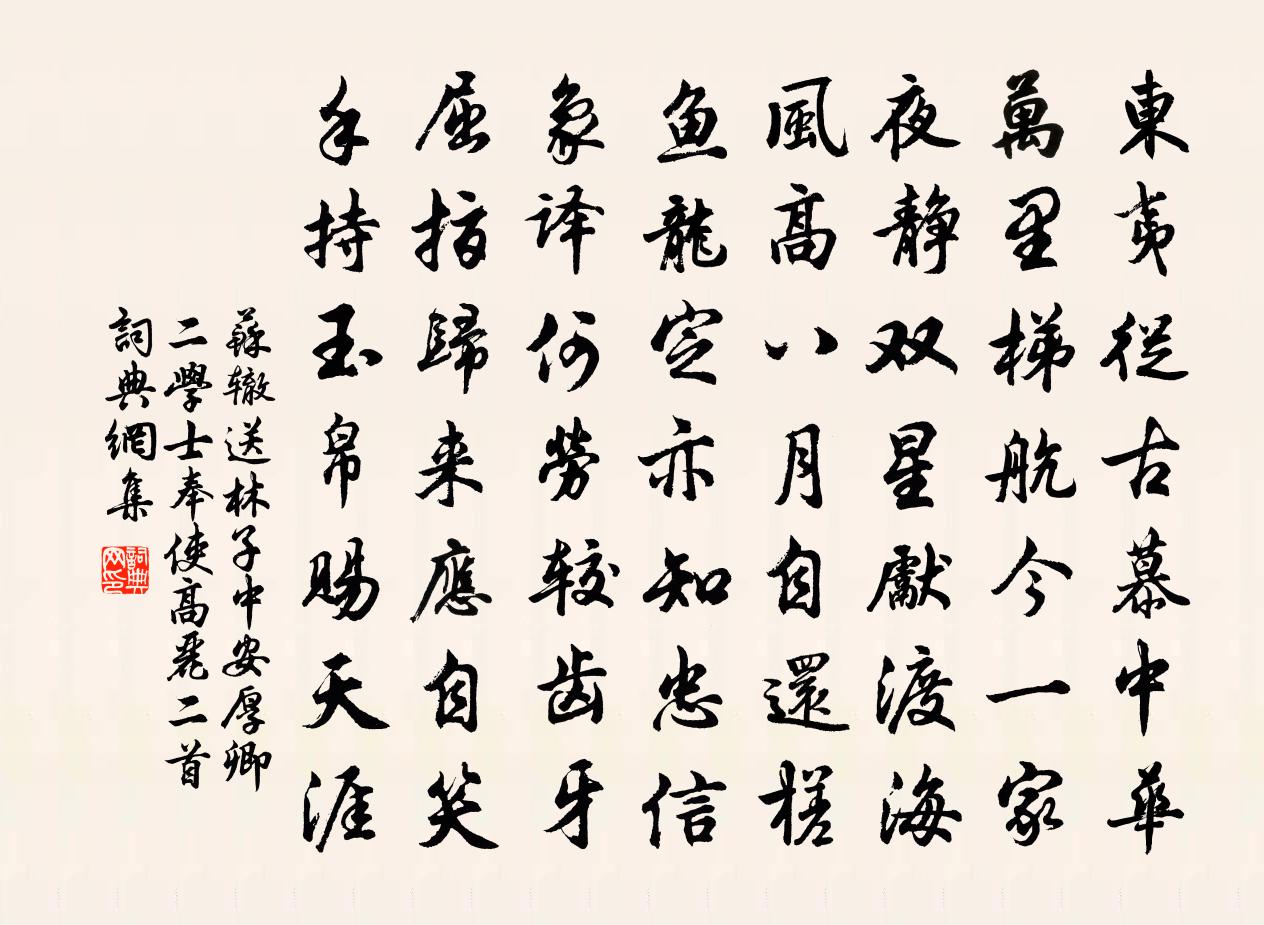 東夷從古慕中華
萬里梯航今一家
夜静双星獻渡海
風高八月自還槎
鱼龍定亦知忠信
象译何勞较齿牙
屈指歸来應自笑
手持玉帛赐天涯
蘇辙送林子中安厚卿
二學士奉使高麗二首
詞典網集
詞典网印